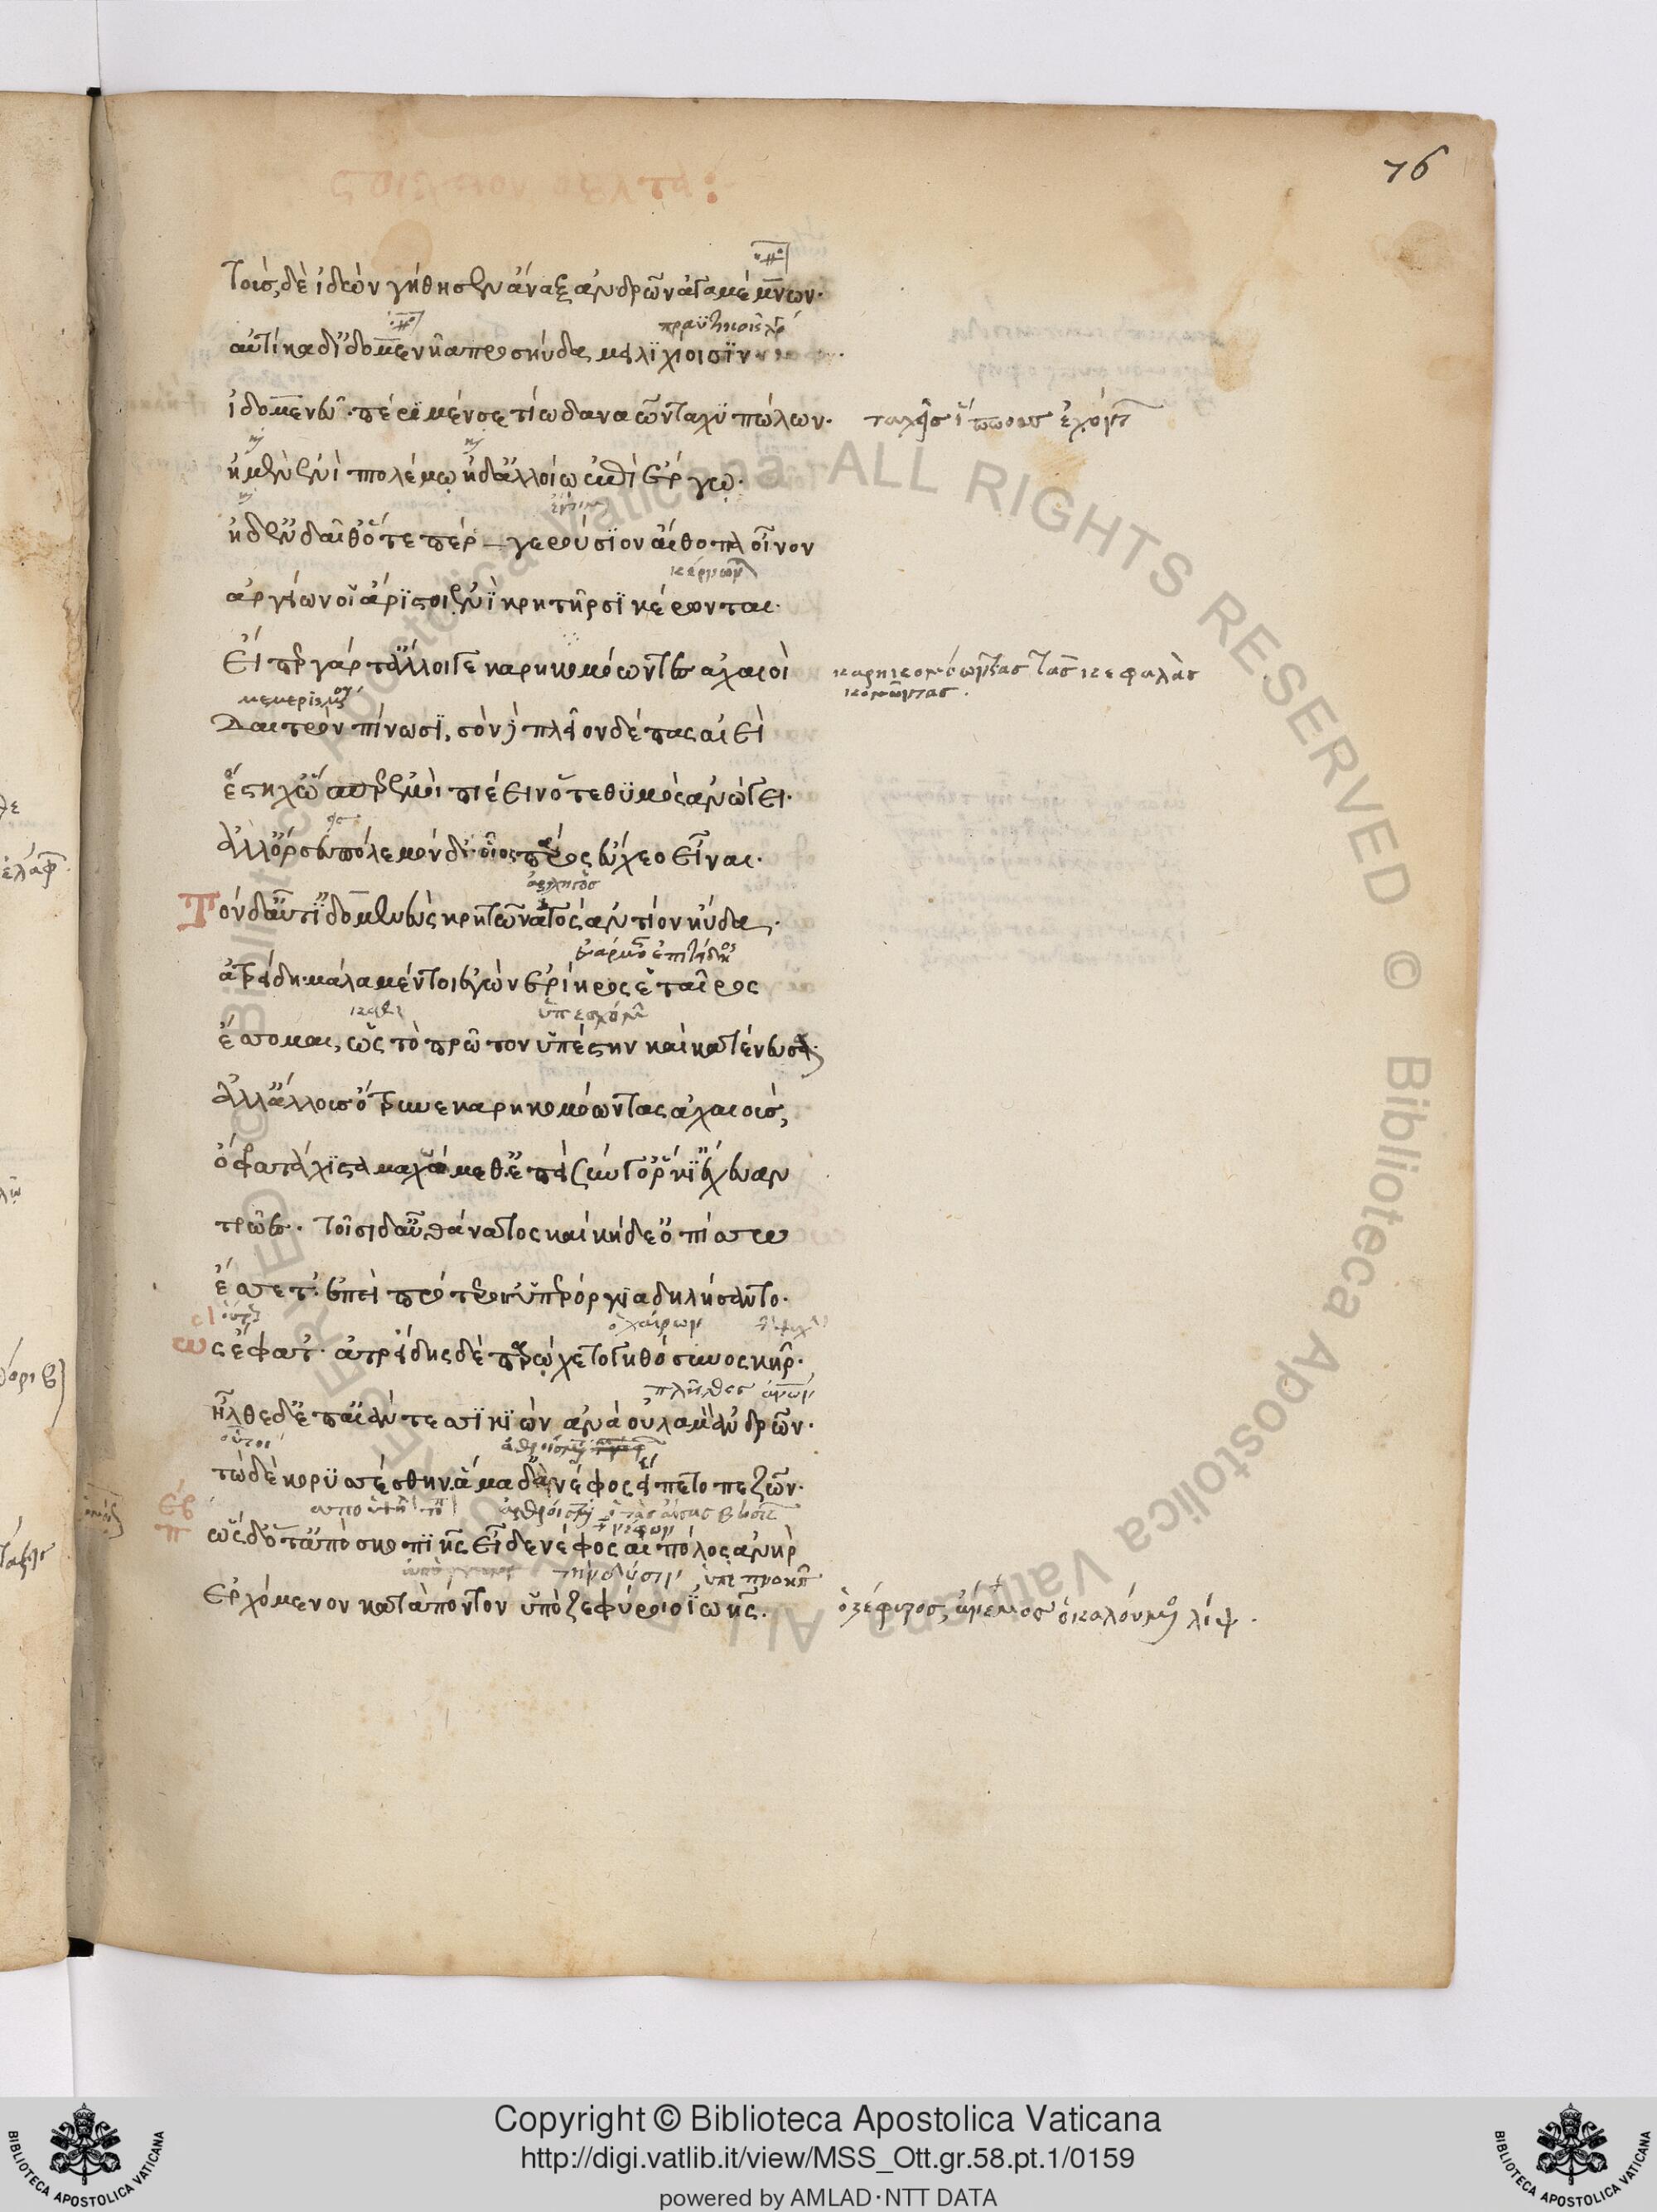 76
Τοὺς δὲ ἰδὼν γήθησεν ἄναξ ἀνδρῶν ἀγαμέμνων.
αὐτίκα δ' ἰδομενῆα προσηύδα μειλιχίοισιν
ἰδομενεῦ· πέρι μέν σε τίω δαναῶν ταχυπώλων· ταχεῖς ἵππους ἐχόντ
ἠμὲν ἐνὶ πολέμῳ ἠδ' ἀλλοίῳ ἐπὶ ἔργῳ·
ἠδ' ἐν δαῖθ' ὅτε πέρ τε γερούσιον αἴθοπα οἶνον
κέρνων
ἀργείων οἳ ἄριστοι ἐνὶ κρητῆρσι κέρωνται·
Εἴ περ γάρ τ' ἄλλοι γε καρηκομόωντες ἀχαιοὶ καρηκομόωντας τὰς κεφαλὰς
κομῶντας.
Δαιτρὸν πίνωσι, σὸν δὲ πλεῖον δέπας αἰεὶ
ἕστηχ' ὥσπερ ἐμοὶ πιέειν ὅτε θυμὸς ἀνώγει·
Ἀλλ' ὄρσευ πόλεμον δ' οἷος πάρος εὔχεο εἶναι·
Τὸν δ' αὖτ' ἰδομενεὺς κρητῶν ἀγὸς ἀντίον ηὔδα·
ἀτρείδη· μάλα μέν τοι ἐγὼν ἐρίηρος ἑταῖρος
ἔσσομαι, ὡς τὸ πρῶτον ὑπέστην καὶ κατένευσα·
Ἀλλ' ἄλλους ὄτρυνε καρηκομόωντας ἀχαιούς,
ὄφρα τάχιστα μαχώμεθ' ἐπεὶ σύν γ' ὅρκι' ἔχευαν
τρῶες· τοῖσι δ' αὖ θάνατος καὶ κήδε' ὀπίσσω
ἔσσετ' ἐπεὶ πρότεροι ὑπὲρ ὅρκια δηλήσαντο·
ὁ χαίρων
ὣς ἔφατ'· ἀτρείδης δὲ παρῴχετο γηθόσυνος κῆρ·
πλῆθος
ἦλθε δ' ἐπ' αἰάντεσσι κιὼν ἀνὰ οὐλαμὸν ἀνδρῶν·
οὗτοι
τὼ δὲ κορυσσέσθην· ἅμα δὲ νέφος εἵπετο πεζῶν·
ὡς δ' ὅτ' ἀπὸ σκοπιῆς εἶδε νέφος αἰπόλος ἀνὴρ
Ἐρχόμενον κατὰ πόντον ὑπὸ ζεφύροιο ἰωῆς. ὁ ζέφυρος, ἄνεμος ὁ καλούμενος λίψ.
Copyright © Biblioteca Apostolica Vaticana
http://digi.vatlib.it/view/MSS_Ott.gr.58.pt.1/0159
powered by AMLAD·NTT DATA